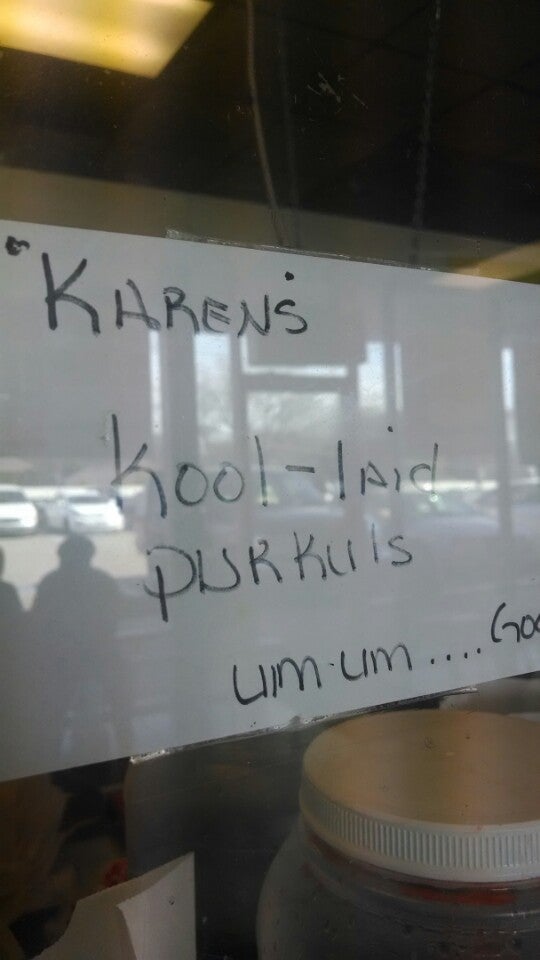 "KARENS
Kool-laid
purkuls
um-um....Goo